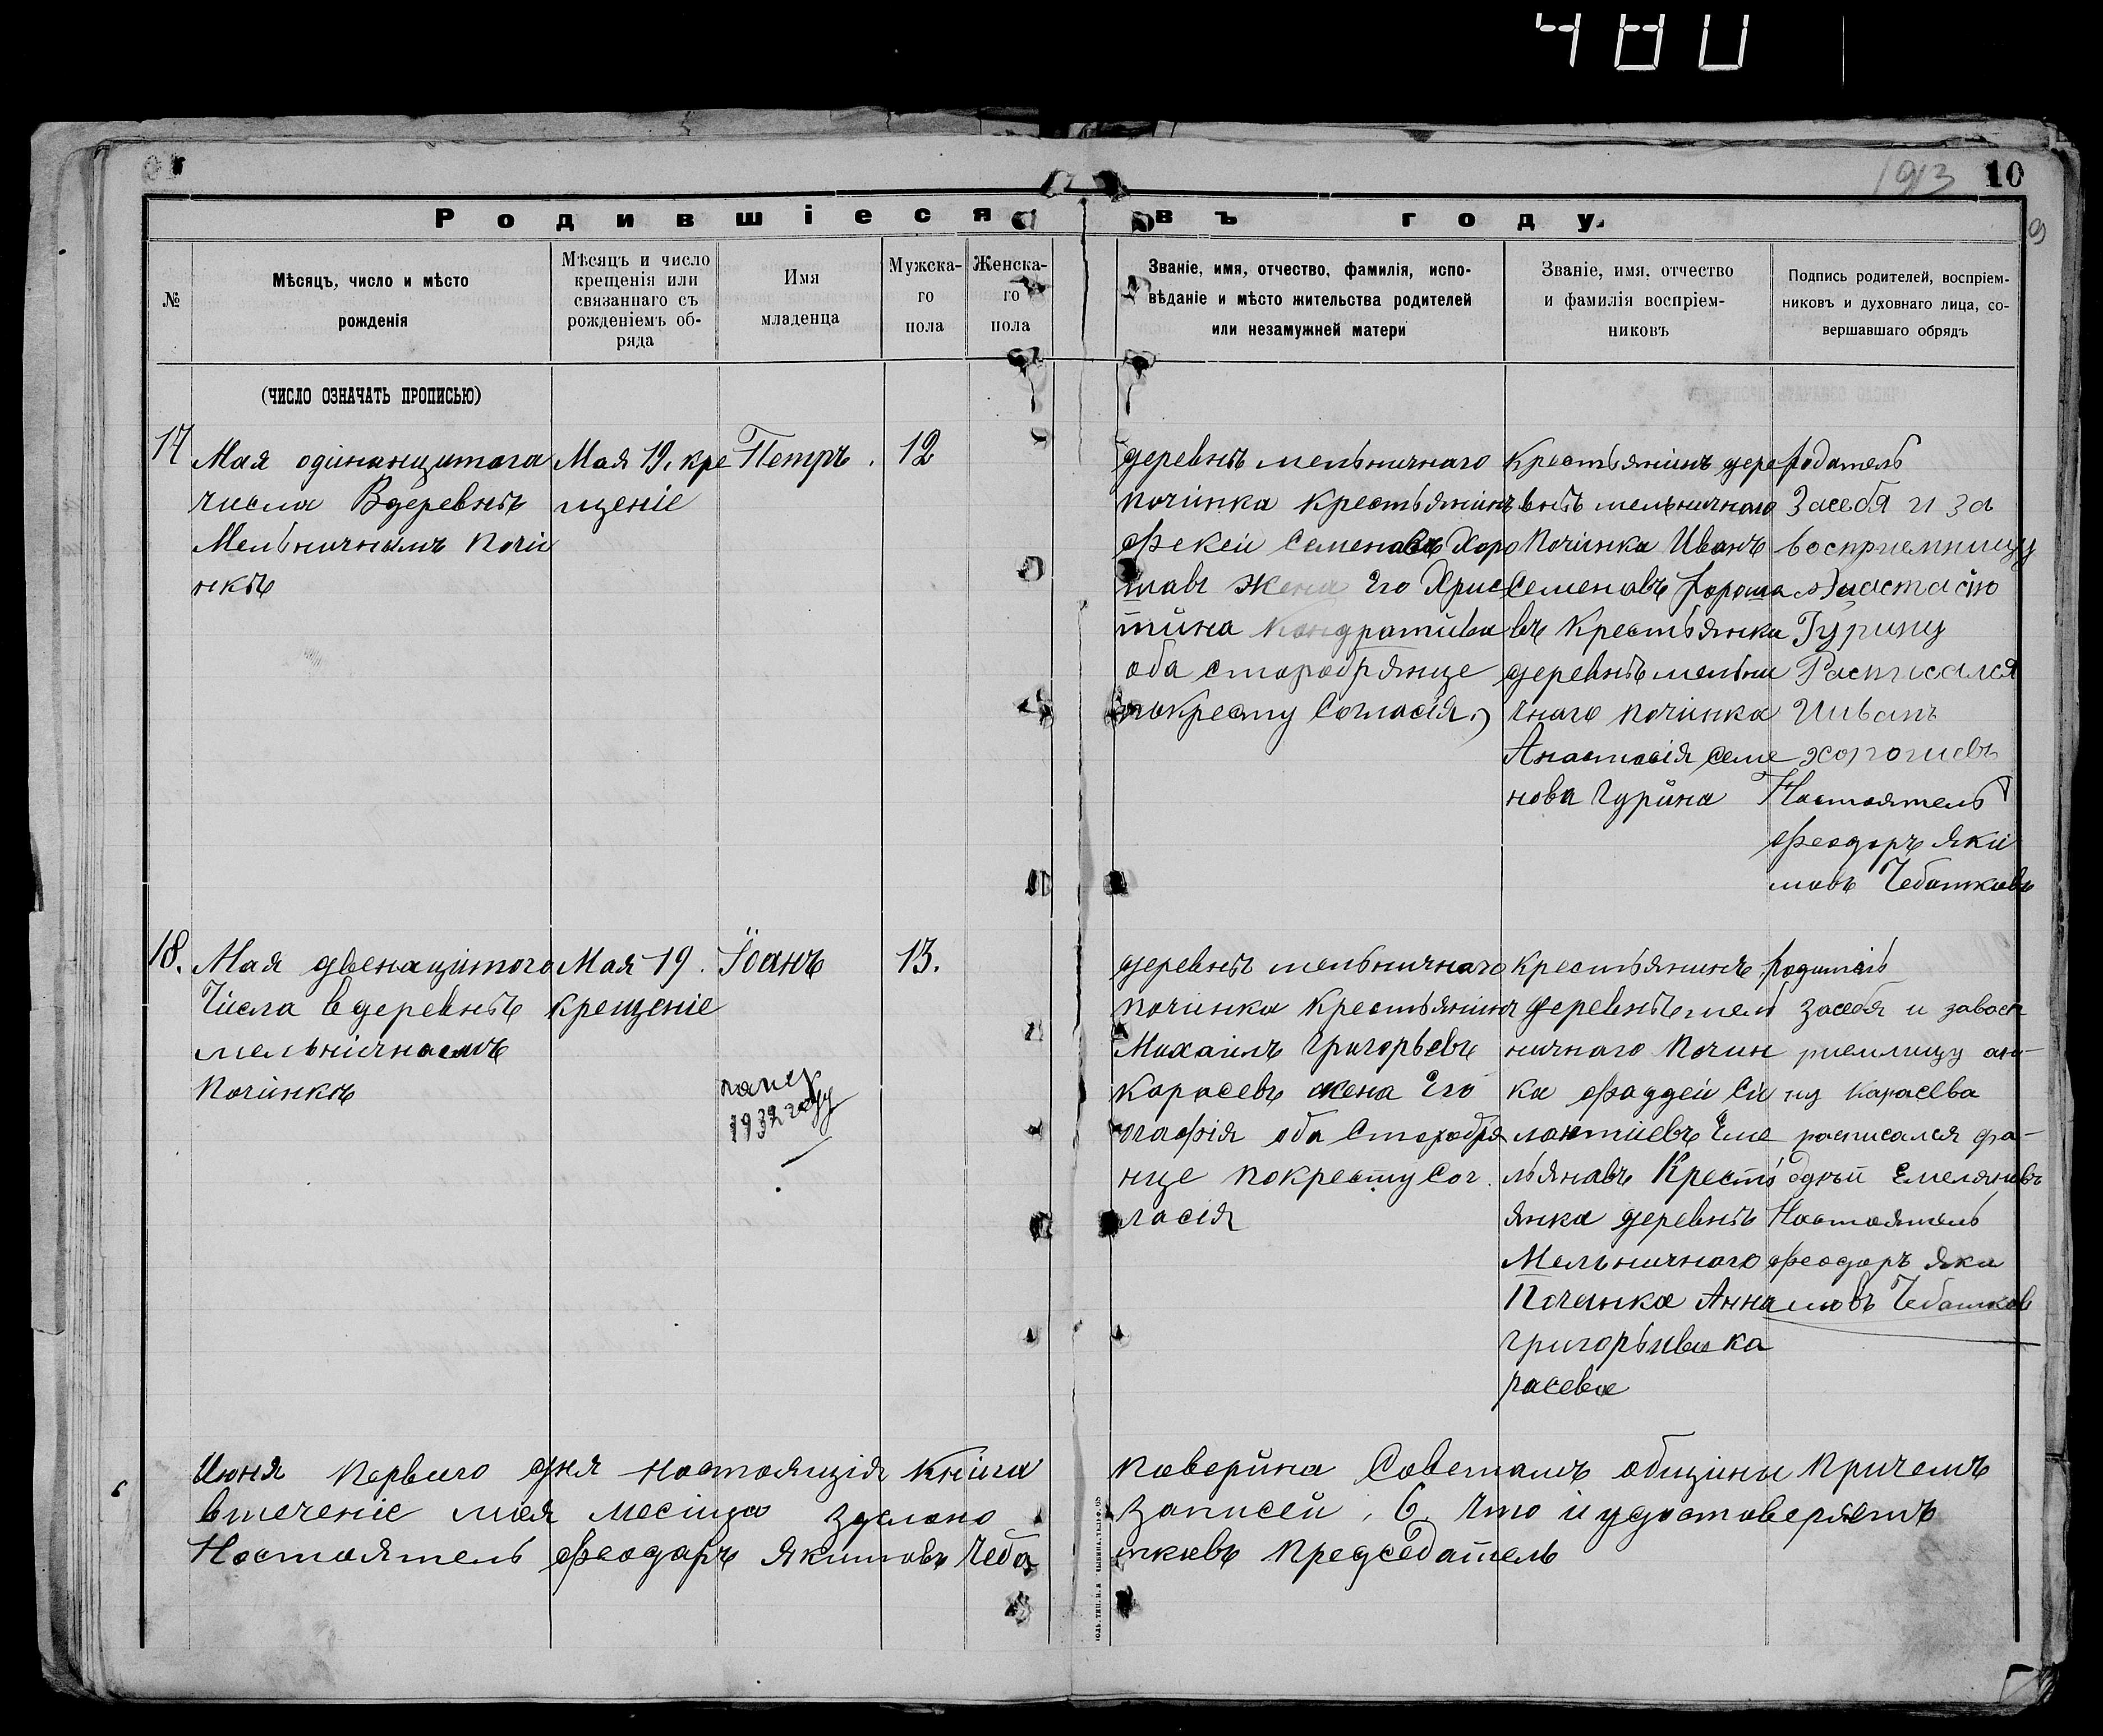 480
1913 10
9
Родившіеся въ году.
№
Мѣсяцъ, число и мѣсто
рожденія
Мѣсяцъ и число
крещенія или
связаннаго съ
рожденіемъ об-
ряда
Имя
младенца
Мужска-
го
пола
Женска-
го
пола
Званіе, имя, отчество, фамилія, испо-
вѣданіе и мѣсто жительства родителей
или незамужней матери
Званіе, имя, отчество
и фамилія воспріем-
никовъ
Подпись родителей, воспріем-
никовъ и духовнаго лица, со-
вершавшаго обрядъ
(ЧИСЛО ОЗНАЧАТЬ ПРОПИСЬЮ)
17
Мая одінанцытага
числа Вдеревнѣ
Мельничнымъ почи
нкѣ
Мая 19. кре
щеніе
Петръ.
12
деревнѣ мельничнаго
починка крестьянинъ
Фекей Семеновъ Хоро
шавъ жена Его Хрис
тина Кондратива
оба старобрянце
покресту Согласія.
Крестьянинъ дере
внѣ мельничнаго
Починка Иванъ
Семеновъ хороша
въ Крестьянка
деревнѣ мельни
чнаго починка
Анастасія семе
нова гурина
родатель
Засебя и за
восприемницу
Анастасію
Гурину
Расписался
Ииванъ
хорошевъ
Настоятель
Феодоръ Яки
мовъ Чебатковъ
18.
Мая двенацитого
Числа вдеревнѣ
мельничнаемъ
Починкѣ
Мая 19.
крещеніе
Іоанъ
1932 году
13.
деревнѣ мельничнаго
починка крестьянинъ
Михаилъ Григорьевъ
Карасевъ жена Его
Агафія оба Старобря
нце покресту Сог
ласія
крестьянинъ
деревнѣ мель
ничнаго Почин
ка Фаддей Си
лантіевъ Еме
льянавъ Кресть
янка деревнѣ
Мельничнаго
Починка Анна
григорьивика
расева
родитель
засебя и завосп
риемницу ан-
ну карасева
расписался фа-
дѣй Емеляновъ
Настоятель
Феодоръ Яки
мовъ Чебатков
6
Июня Первого дня настоящія книга
втеченіе мая месіца зделано
Настоятель Феодаръ Якимовъ Чеба
паверина Саветамъ общины причемъ
записей. 6. что и удостоверяетъ
тковъ председатель